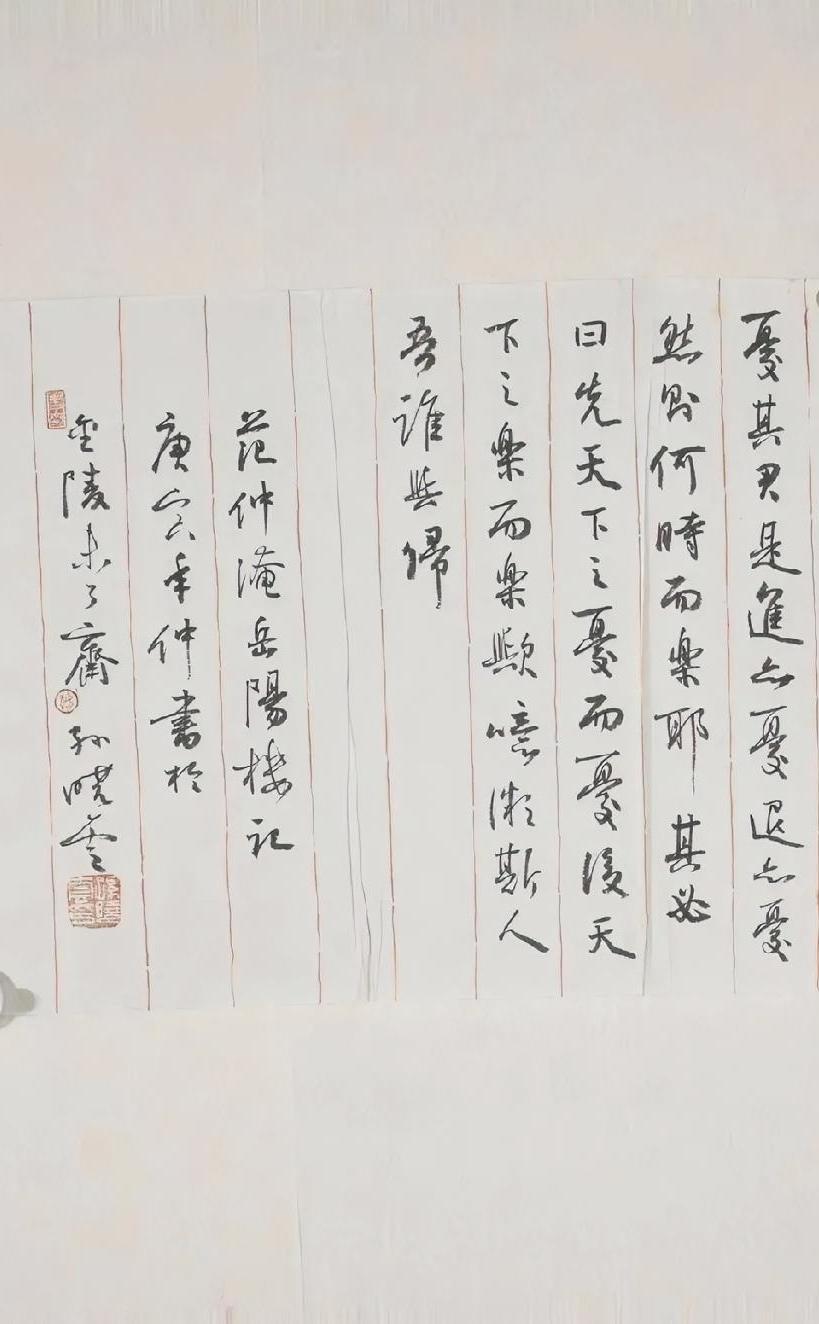 憂其君是進亦憂退亦憂
然則何時而樂耶其必
曰先天下之憂而憂後天
下之樂而樂歟噫微斯人
吾誰與歸
范仲淹岳陽樓記
庚寅年仲書於
金陵未了齋孫曉雲